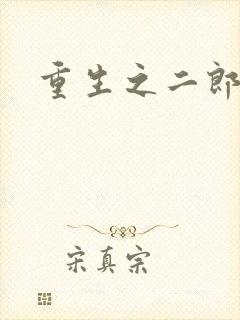 重生之二郎
宋真宗